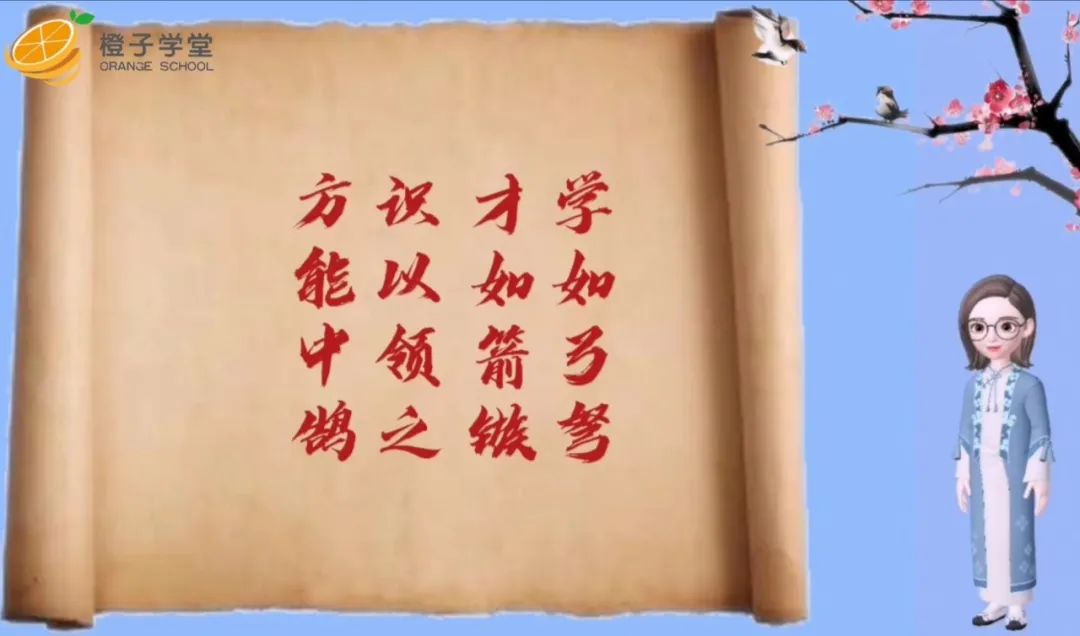 橙子学堂
ORANGE SCHOOL
学如弓弩
才如箭镞
识以领之
方能中鹄